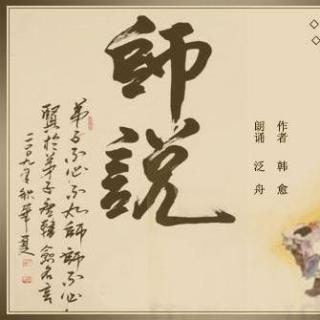 師說
作者 韩愈
朗诵 泛舟
弟子不必不如師 師不必
賢於弟子 唐韓愈名言